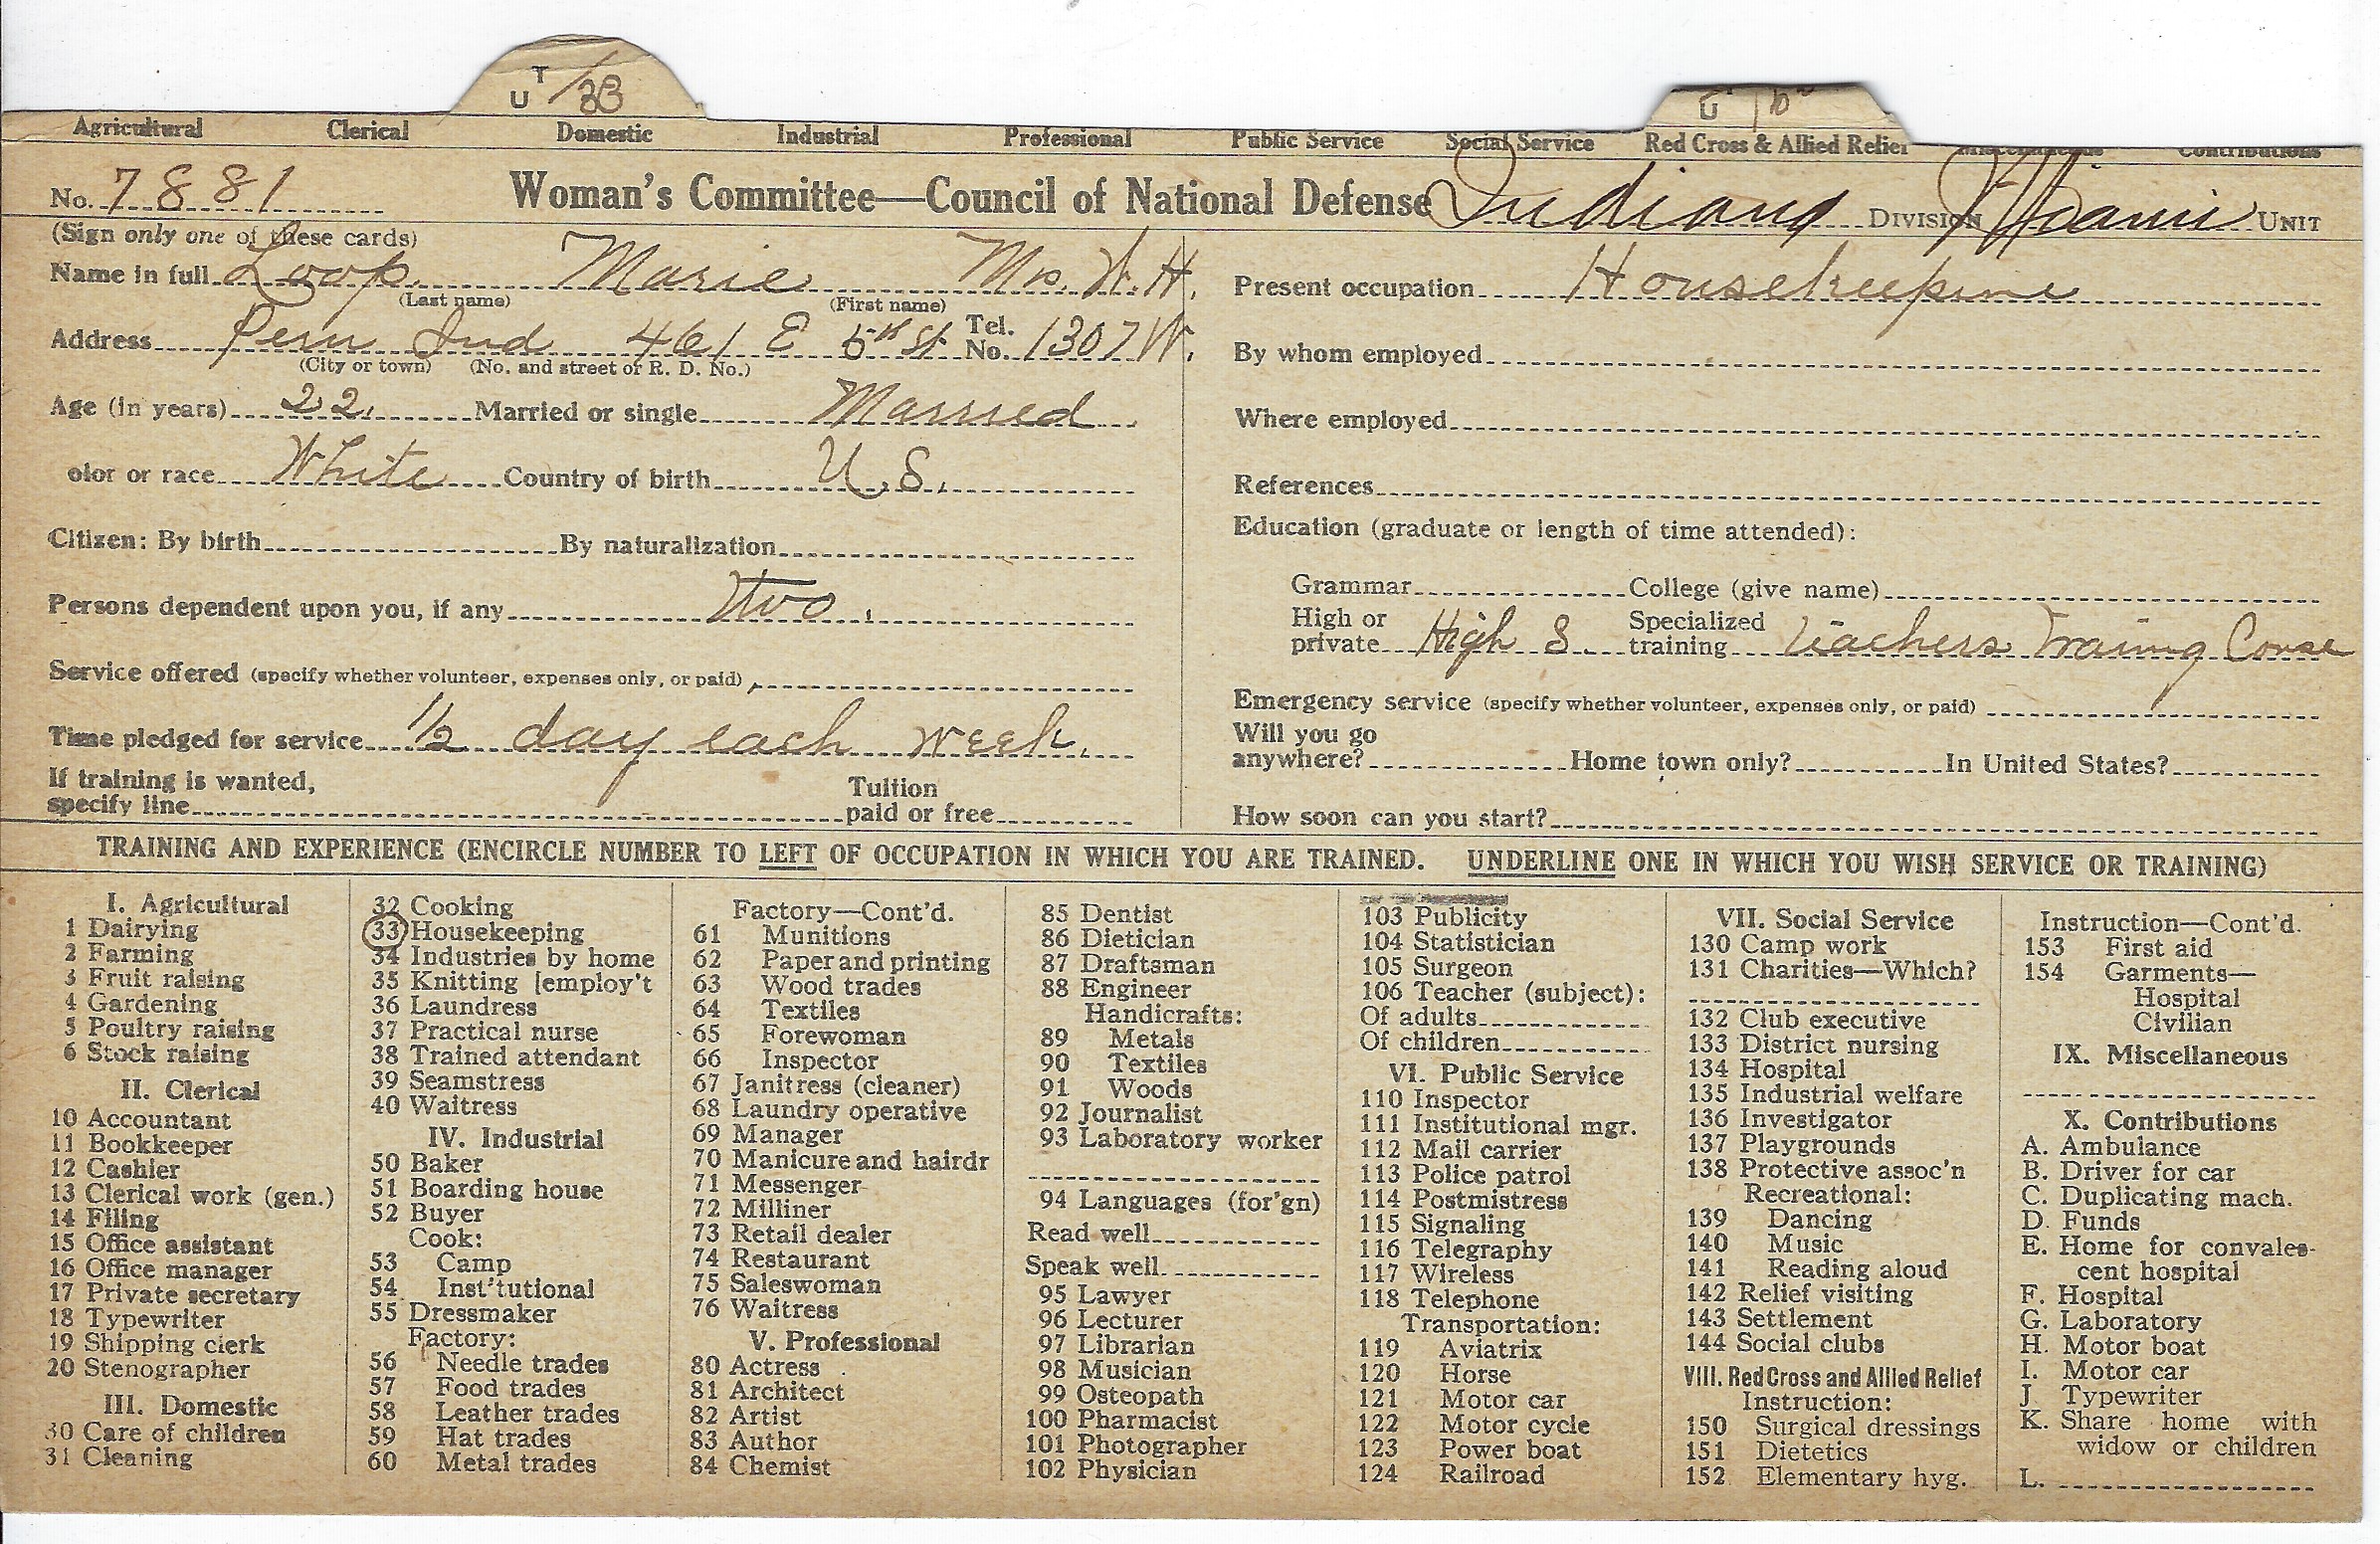 T
U /33
U
Agricultural Clerical Domestic Industrial Professional Public Service Social Service Red Cross & Allied Relief Miscellaneous Contributions
No. 7881 Woman's Committee—Council of National Defense Indiana DIVISION Miami UNIT
(Sign only one of these cards)
Name in full Loop Marie Mrs. W. H.
(Last name) (First name)
Address Peru Ind 461 E 5th St Tel. No. 1307 W.
(City or town) (No. and street or R. D. No.)
Age (in years) 22. Married or single Married
olor or race White Country of birth U.S.
Citizen: By birth By naturalization
Persons dependent upon you, if any Two.
Service offered (specify whether volunteer, expenses only, or paid)
Time pledged for service 1/2 day each week.
If training is wanted, specify line Tuition paid or free
Present occupation Housekeeping
By whom employed
Where employed
References
Education (graduate or length of time attended):
Grammar College (give name)
High or private High S. Specialized training Teachers Training Course
Emergency service (specify whether volunteer, expenses only, or paid)
Will you go anywhere? Home town only? In United States?
How soon can you start?
TRAINING AND EXPERIENCE (ENCIRCLE NUMBER TO LEFT OF OCCUPATION IN WHICH YOU ARE TRAINED. UNDERLINE ONE IN WHICH YOU WISH SERVICE OR TRAINING)
I. Agricultural
1 Dairying
2 Farming
3 Fruit raising
4 Gardening
5 Poultry raising
6 Stock raising
II. Clerical
10 Accountant
11 Bookkeeper
12 Cashier
13 Clerical work (gen.)
14 Filing
15 Office assistant
16 Office manager
17 Private secretary
18 Typewriter
19 Shipping clerk
20 Stenographer
III. Domestic
30 Care of children
31 Cleaning
32 Cooking
33 Housekeeping
34 Industries by home
35 Knitting [employ't
36 Laundress
37 Practical nurse
38 Trained attendant
39 Seamstress
40 Waitress
IV. Industrial
50 Baker
51 Boarding house
52 Buyer
Cook:
53 Camp
54 Inst'tutional
55 Dressmaker
Factory:
56 Needle trades
57 Food trades
58 Leather trades
59 Hat trades
60 Metal trades
Factory—Cont'd.
61 Munitions
62 Paper and printing
63 Wood trades
64 Textiles
65 Forewoman
66 Inspector
67 Janitress (cleaner)
68 Laundry operative
69 Manager
70 Manicure and hairdr
71 Messenger
72 Milliner
73 Retail dealer
74 Restaurant
75 Saleswoman
76 Waitress
V. Professional
80 Actress
81 Architect
82 Artist
83 Author
84 Chemist
85 Dentist
86 Dietician
87 Draftsman
88 Engineer
Handicrafts:
89 Metals
90 Textiles
91 Woods
92 Journalist
93 Laboratory worker
94 Languages (for'gn)
Read well
Speak well
95 Lawyer
96 Lecturer
97 Librarian
98 Musician
99 Osteopath
100 Pharmacist
101 Photographer
102 Physician
103 Publicity
104 Statistician
105 Surgeon
106 Teacher (subject):
Of adults
Of children
VI. Public Service
110 Inspector
111 Institutional mgr.
112 Mail carrier
113 Police patrol
114 Postmistress
115 Signaling
116 Telegraphy
117 Wireless
118 Telephone
Transportation:
119 Aviatrix
120 Horse
121 Motor car
122 Motor cycle
123 Power boat
124 Railroad
VII. Social Service
130 Camp work
131 Charities—Which?
132 Club executive
133 District nursing
134 Hospital
135 Industrial welfare
136 Investigator
137 Playgrounds
138 Protective assoc'n
Recreational:
139 Dancing
140 Music
141 Reading aloud
142 Relief visiting
143 Settlement
144 Social clubs
VIII. Red Cross and Allied Relief
Instruction:
150 Surgical dressings
151 Dietetics
152 Elementary hyg.
Instruction—Cont'd.
153 First aid
154 Garments—
Hospital
Civilian
IX. Miscellaneous
X. Contributions
A. Ambulance
B. Driver for car
C. Duplicating mach.
D. Funds
E. Home for convales-
cent hospital
F. Hospital
G. Laboratory
H. Motor boat
I. Motor car
J. Typewriter
K. Share home with
widow or children
L.